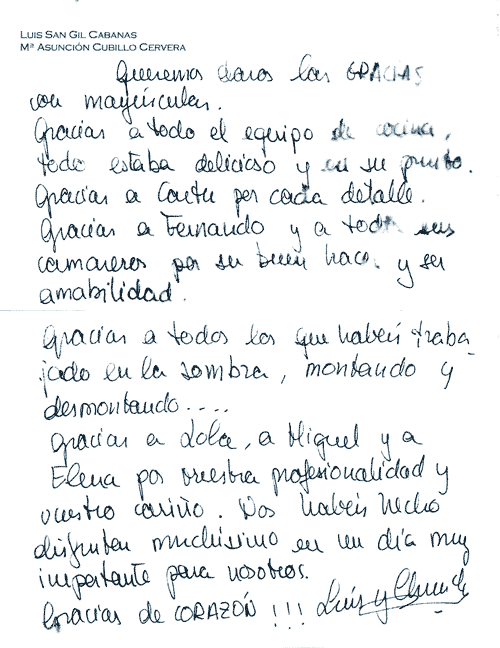 LUIS SAN GIL CABANAS
Mª ASUNCIÓN CUBILLO CERVERA
Queremos daros las GRACIAS
con mayúsculas.
Gracias a todo el equipo de cocina,
todo estaba delicioso y en su punto.
Gracias a por cada detalle.
Gracias a Fernando y a todos sus
camareros por su buen hacer y su
amabilidad.
Gracias a todos los que habéis traba
jado en la sombra, montando y
desmontando....
Gracias a Lola, a Miguel y a
Elena por vuestra profesionalidad y
vuestro cariño. Nos habéis hecho
disfrutar muchísimo en un día muy
importante para nosotros.
Gracias de CORAZÓN !!! Luis y